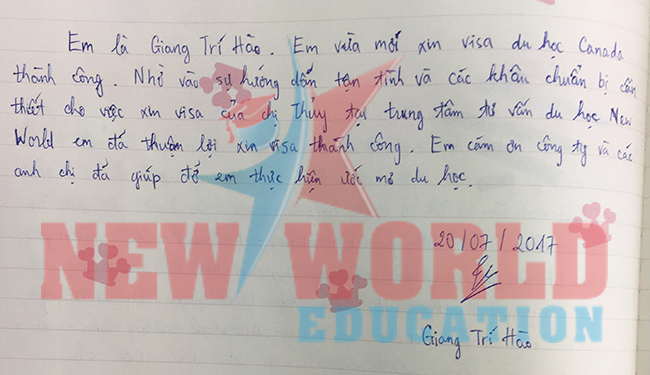 Em là Giang Trí Hào. Em vừa mới xin visa du học Canada
thành công. Nhờ vào sự hướng dẫn tận tình và các khâu chuẩn bị cần
thiết cho việc xin visa của chị Thủy tại trung tâm tư vấn du học New
World em đã thuận lợi xin visa thành công. Em cám ơn công ty và các
anh chị đã giúp đỡ em thực hiện ước mơ du học.
20/07/2017
Giang Trí Hào
NEW WORLD
EDUCATION